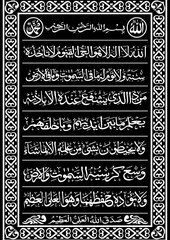 الله
بسم الله الرحمن الرحيم
محمد
الله لا إله إلا هو الحي القيوم لا تأخذه
سنة ولا نوم له ما في السموات وما في الأرض
من ذا الذي يشفع عنده إلا بإذنه
يعلم ما بين أيديهم وما خلفهم
ولا يحيطون بشيء من علمه إلا بما شاء
وسع كرسيه السموات والأرض
ولا يؤده حفظهما وهو العلي العظيم
صدق الله العلي العظيم